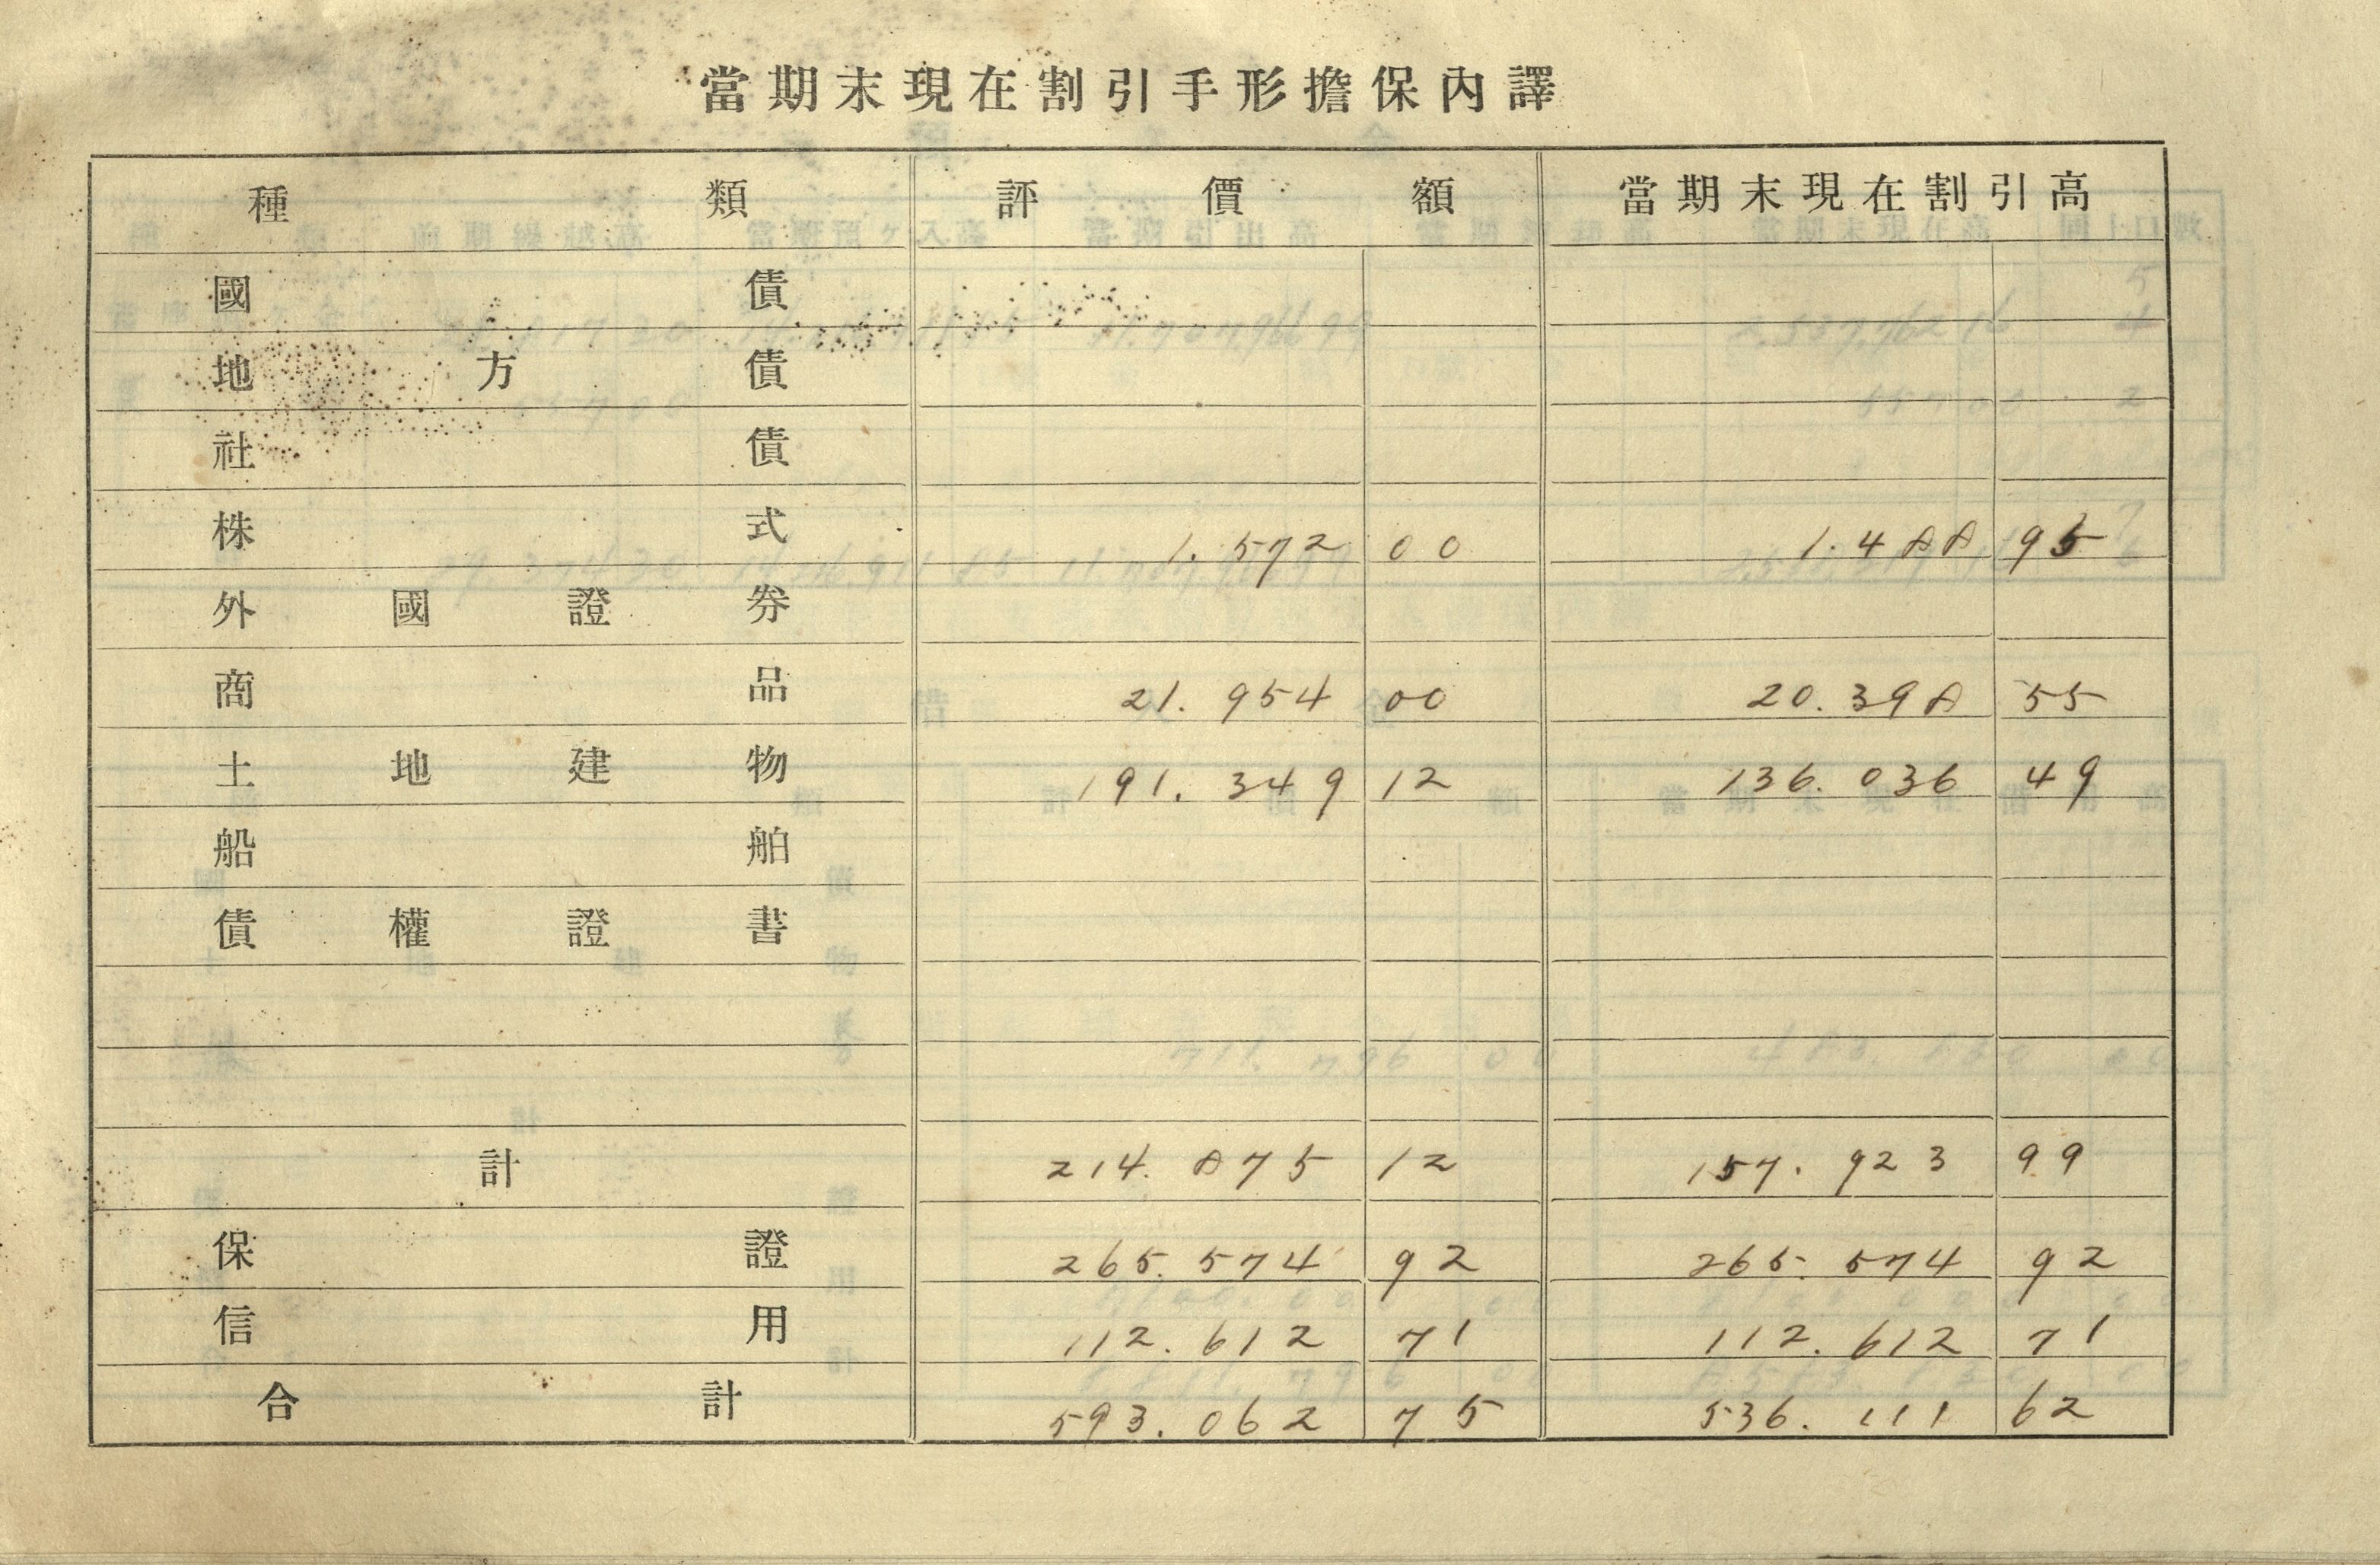 當期末現在割引手形擔保內譯
種類 評價額 當期末現在割引高
國債
地方債
社債
株式 1.572 00 1.488 95
外國證券
商品 21.954 00 20.398 55
土地建物 191.349 12 136.036 49
船舶
債權證書
計 214.875 12 157.923 99
保證 265.574 92 265.574 92
信用 112.612 71 112.612 71
合計 593.062 75 536.111 62